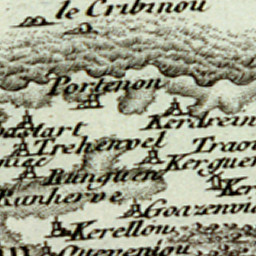 le Cribinou
Portenon
Kerdrein
Trehenvel
Kerguen
Runguen
Runherve
Goazenvi
Kerellon
Queveniou